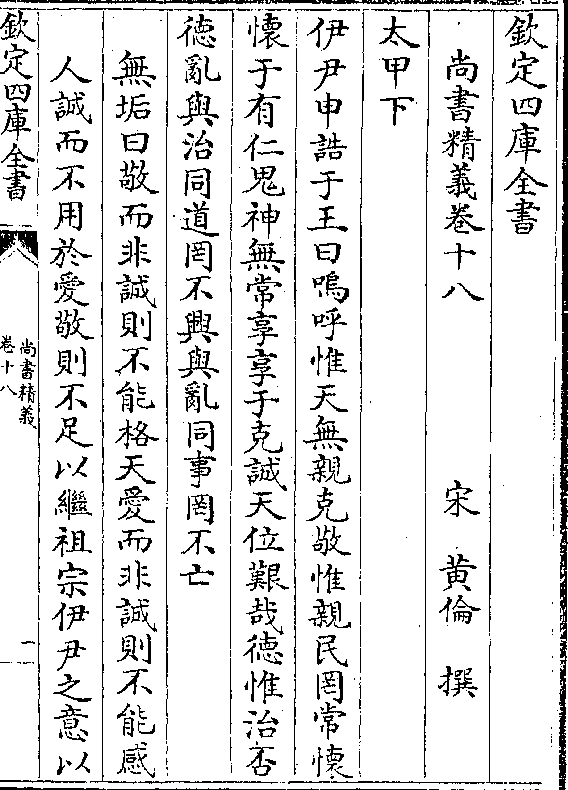 欽定四庫全書
尚書精義卷十八
宋 黄倫 撰
太甲下
伊尹申誥于王曰嗚呼惟天無親克敬惟親民罔常懷
懷于有仁鬼神無常享享于克誠天位艱哉德惟治否
德亂與治同道罔不興與亂同事罔不亡
無垢曰敬而非誠則不能格天愛而非誠則不能感
人誠而不用於愛敬則不足以繼祖宗伊尹之意以
欽定四庫全書
尚書精義
卷十八
一